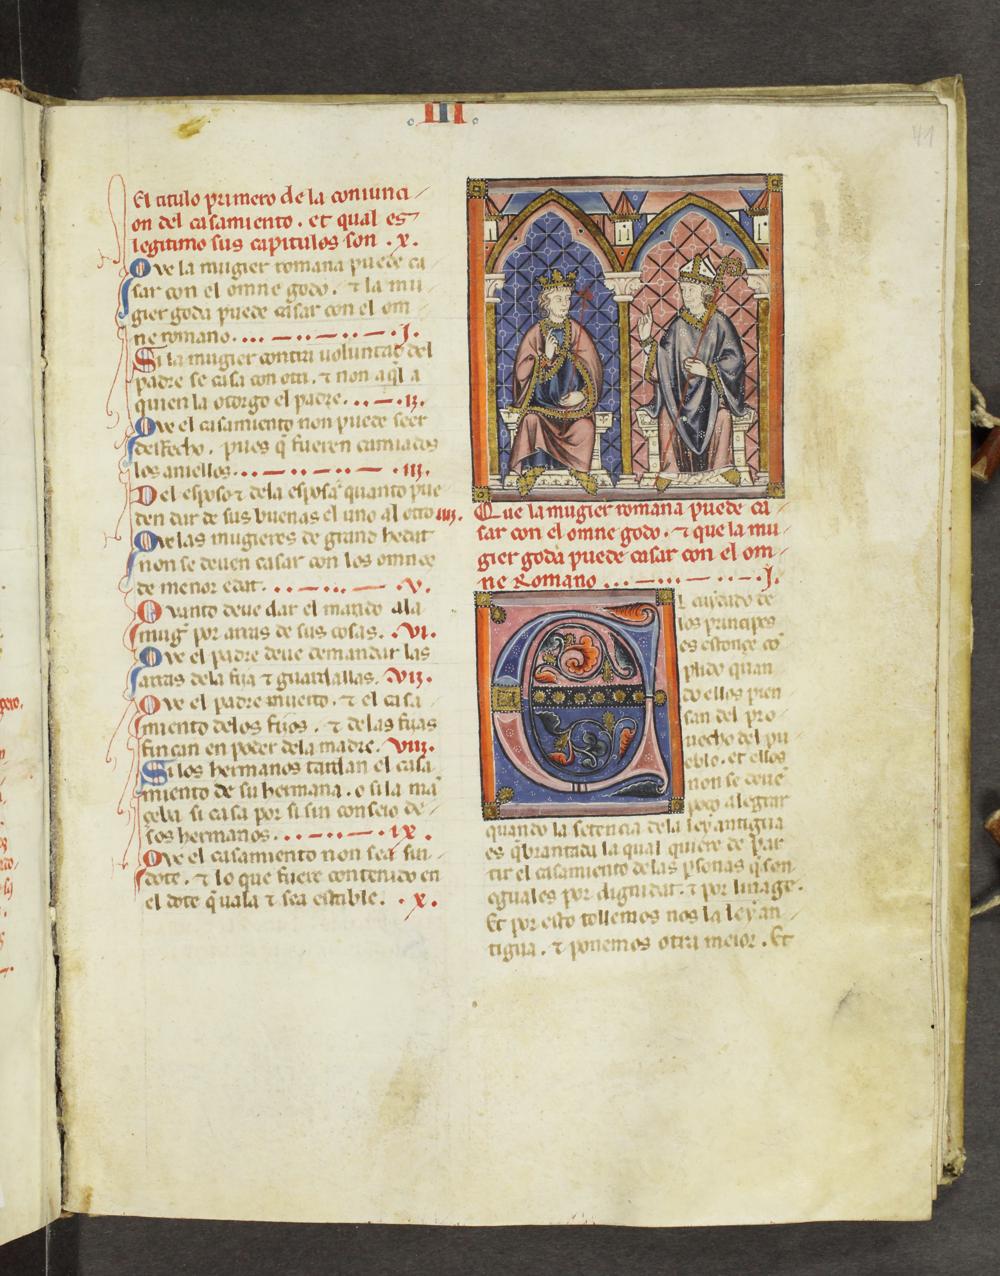 III
41
El titulo primero de la coniunci
on del casamiento . et qual es
legitimo sus capitulos son . x .
Que la mugier romana puede ca
sar con el omne godo . ⁊ la mu
gier goda puede casar con el om
ne romano . I .
Si la mugier contra voluntad del
padre se casa con otri . ⁊ non aq̃l a
quien la otorgo el padre . II .
Que el casamiento non puede seer
desfecho . pues q̃ fueren camiados
los aniellos . III .
Del esposo ⁊ dela esposa quanto pue
den dar de sus buenas el uno al otro IIII .
Que las mugieres de grand hedat
non se deuen casar con los omnes
de menor edat . V .
Quanto deue dar el marido ala
mug̃ por arras de sus cosas . VI .
Que el padre deue demandar las
arras dela fija ⁊ guardallas . VII .
Que el padre muerto . ⁊ el casa
miento delos fijos . ⁊ delas fijas
fincan en poder dela madre . VIII .
Si los hermanos tardan el casa
miento de su hermana . o si la mã
ceba si casa por si sin conseio de
sos hermanos . IX .
Que el casamiento non sea sin
dote . ⁊ lo que fuere contenido en
el dote q̃ uala ⁊ sea estable . X .
Que la mugier romana puede ca
sar con el omne godo . ⁊ que la mu
gier goda puede casar con el om
ne Romano . I .
El cuydado de
los principes
es estonçe cõ
plido quan
do ellos pien
san del pro
uecho del pu
eblo . et ellos
non se deuẽ
poco alegrar
quando la setencia dela ley antigua
es q̃brantada la qual quiere de par
tir el casamiento delas p̃sonas q̃ son
eguales por dignidat . ⁊ por linage .
Et por esto tollemos nos la ley an
tigua . ⁊ ponemos otra meior . Et